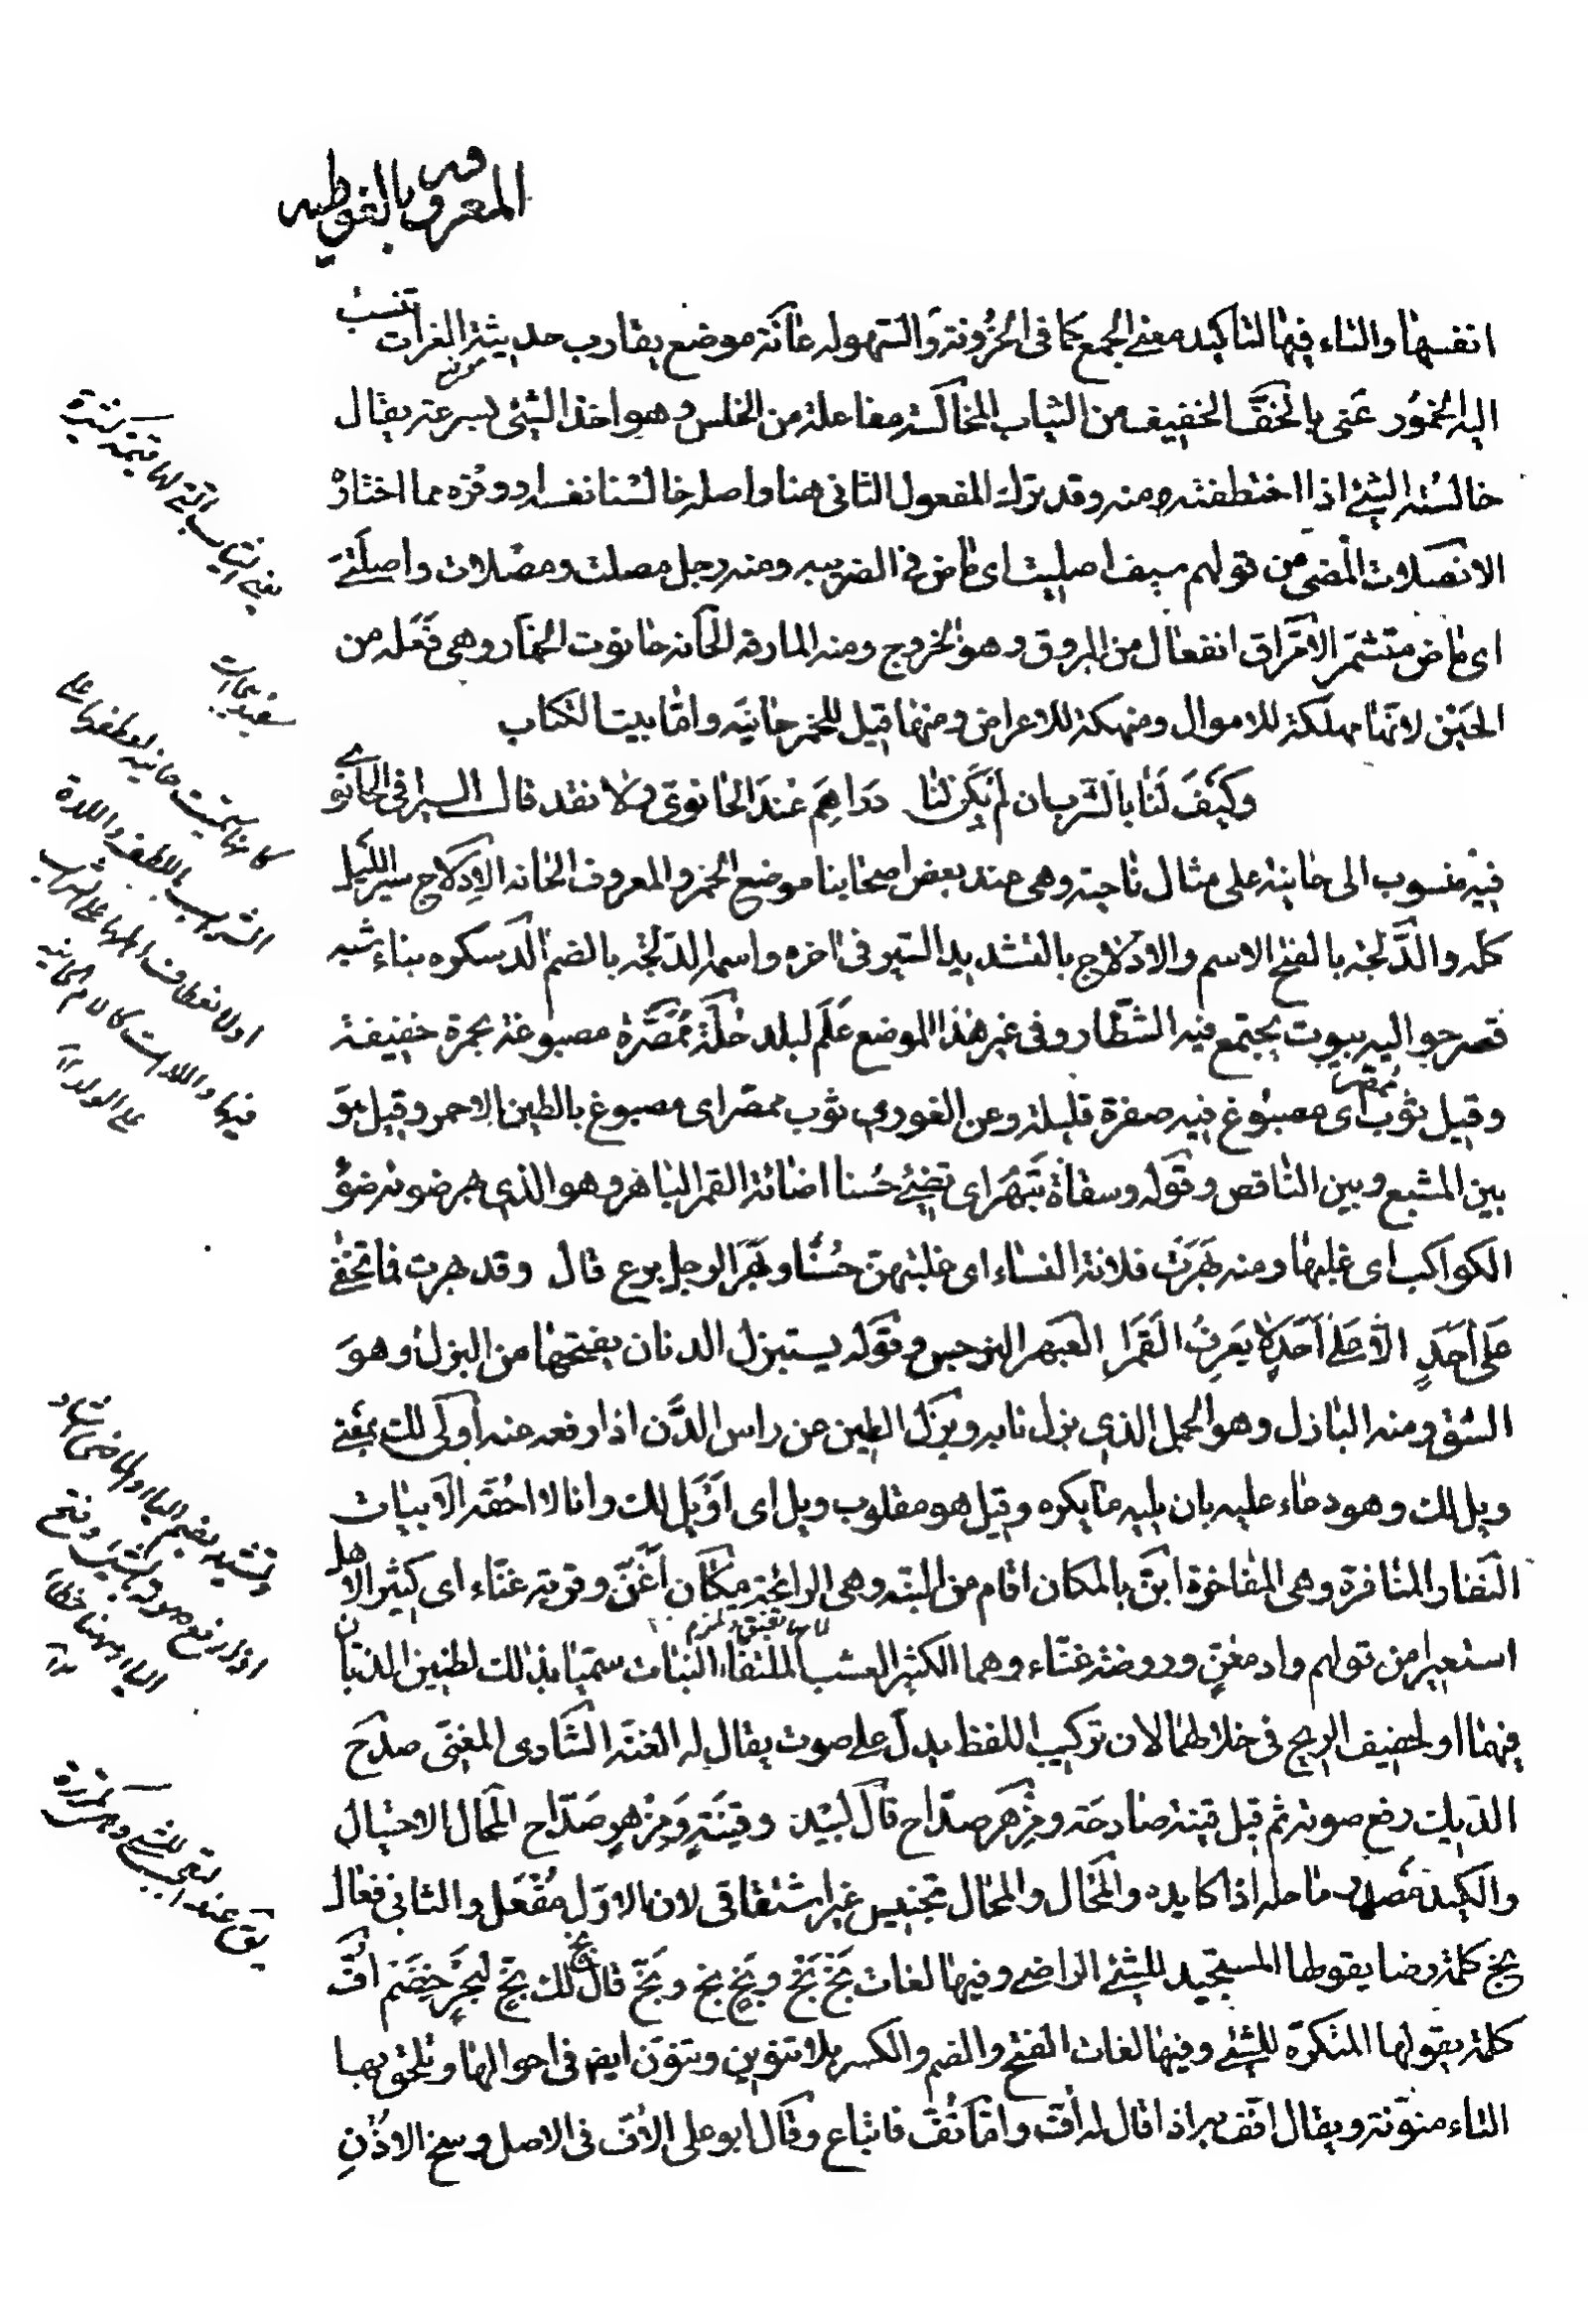 المعروف بالغوطيه
انفسها والتاء فيها لتاكيد معنى الجمع كما فى الحزونة والسهولة عانة موضع بقارب حديثة الفرات تنسب
اليه الخمور عنى بالخف الخفيف من الثياب المخالسة مفاعلة من الخلس وهو اخذ الشئ بسرعة يقال
خالسته الشئ اذا اختطفته منه وقد ترك المفعول الثانى هنا واصله خالسنا نفسه مما اختار
الانصلات المضى من قولهم سيف اصليت اى ماض فى الضريبه ومنه رجل مصلت ومصلات واصلتى
اى ماض متشمر الامراق انفعال من المروق وهو الخروج ومنه المارقة الحانة حانوت الخمار وهى فعله من
الحين لانها مهلكة للاموال ومنهكة للاعراض ومنها قيل للخمر حانية واما بيت الكتاب
وكيف لنا بالشرب ان لم يكن لنا دراهم عند الحانوى ولا نقد قال السيرافى الحانوى
فيه منسوب الى حانية على مثال ناجية وهى عند بعض اصحابنا موضع الخمر والمعروف الحانه الادلاج سير الليل
كله والدلجة بالفتح الاسم والادلاج بالتشديد السير فى اخره واسمه الدلجة بالضم الدسكره بناء شبه
قصر حواليه بيوت يجتمع فيه الشطار وفى غير هذا الموضع علم لبلد حلة ممصرة مصبوغة بحمرة خفيفة
وقيل ثوب ممصر اى مصبوغ فيه صفرة قليلة وعن الغورى ثوب ممصر اى مصبوغ بالطين الاحمر وقيل هو
بين المشبع وبين الناقص وقوله وسقاة تبهر اى تضئ حسنا اضائة القمر الباهر وهو الذى بهر ضوئه ضوء
الكواكب اى غلبها ومنه بهرت فلانة النساء اى غلبتهن حسنا وبهر الرجل برع قال وقد بهرت فما تخفى
على احد الا على احد لا يعرف القمرا العبهر النرجس وقوله يستبزل الدنان يفتحها من البزل وهو
الشق ومنه البازل وهو الجمل الذى بزل نابه وبزل الطين عن راس الدن اذا رفعه عنه اولى لك بمعنى
ويل لك وهو دعاء عليه بان يليه ما يكره وقيل هو مقلوب ويل اى اويل لك وانا لا احقه الابيات
النفار المنافرة وهى المفاخرة ابن بالمكان اقام من البنه وهى الرائحة مكان اغن وقرية غناء اى كثير الاهل
استعير من قولهم واد مغن وروضة غناء وهما الكثير العشب الملتفا النبات سميا بذلك لطنين الذبان
فيهما او لحفيف الريح فى خلالهما لان تركيب اللفظ يدل على صوت يقال له الغنه الشادى المغنى صدح
الديك رفع صوته ثم قيل قينة صادحة ومزهر صداح قال لبيد وقينة ومزهر صداح المحال الاحتيال
والكيد مصدر ماحله اذا كايده والمحال والمحال تجنيس غير اشتقاقى لان الاول مفعل والثانى فعال
بخ كلمة رضا يقولها المستجيد للشئ الراضى وفيها لغات بخ بخ وبخ بخ وبخ قال لك بخ لبحر خضم اف
كلمة يقولها المتكره للشئ وفيها لغات الفتح والضم والكسر بلا تنوين وتنون ايضا فى احوالها وتلحق بها
التاء منونة ويقال افف به اذا قال له اف واما تف فاتباع وقال ابو على الاف فى الاصل وسخ الاذن
يعنى الثياب التى لها قيمة كثيرة
كانها سميت حانية لعطفها على
الشرب باللطف واللذة